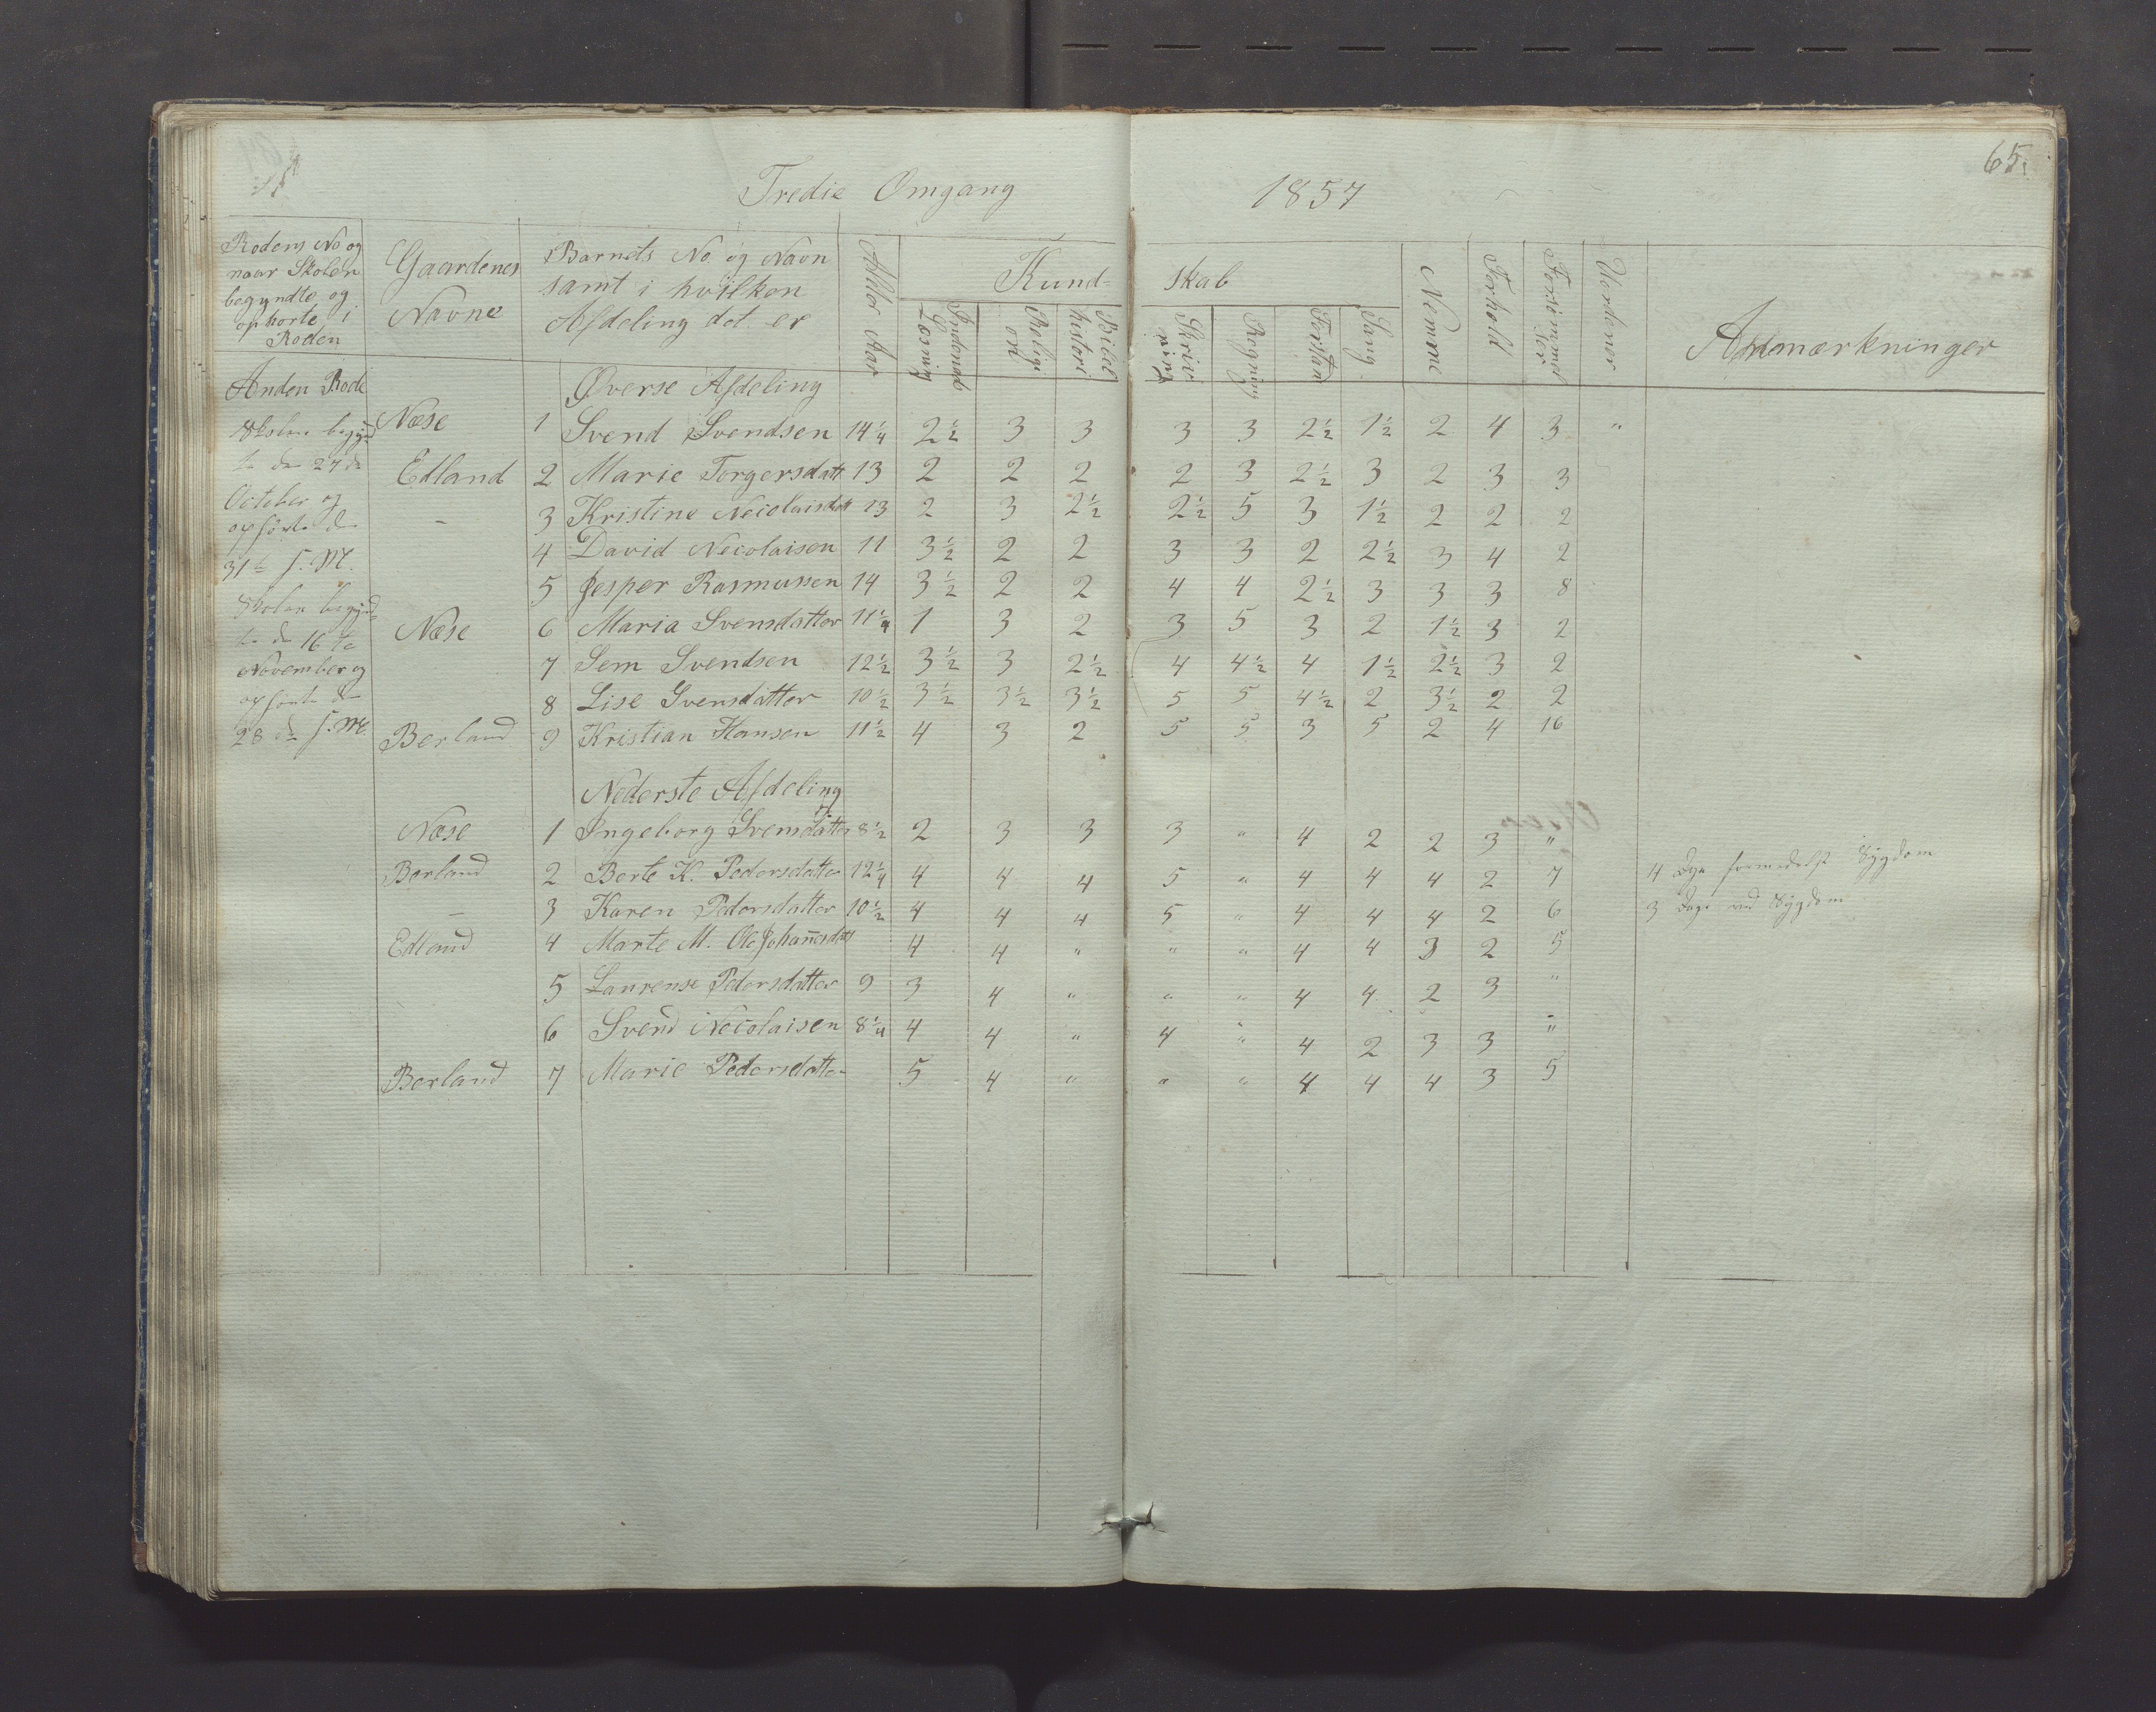 65.
Tredie Omgang 1857
Rodens No og
naar Skolen
begyndte og
ophorte i
Roden
Gaardenes
Navne
Barnets No. og Navn
samt i hvilken
Afdeling det er
Alder Aar
Kund- skab
Indenad Læsning
Religion
Bibel historie
Skrivning
Regning
Forstan
Sang
Nemme
Forhold
Forsømmelser
Uordener
Anmærkninger
Anden Rode
Øverse Afdeling
Skolen begynd
te den 27de
October og
ophörte den
31te s. M.
Skolen begynd
te den 16te
November og
ophörte den
28de s. M.
Næse 1 Svend Svendsen 14 1/4 2 1/2 3 3 3 3 2 1/2 1 1/2 2 4 3 "
Edland 2 Marie Torgersdatt 13 2 2 2 2 3 2 1/2 3 2 3 3
- 3 Kristine Necolaisdatt 13 2 3 2 1/2 2 1/2 5 3 1 1/2 2 2 2
4 David Necolaisen 11 3 1/2 2 2 3 3 2 2 1/2 3 4 2
5 Jesper Rasmussen 14 3 1/2 2 2 4 4 2 1/2 3 3 3 8
Næse 6 Maria Svensdatter 11 1/4 1 3 2 3 5 3 2 1 1/2 3 2
7 Sem Svendsen 12 1/2 3 1/2 3 2 1/2 4 4 1/2 4 1 1/2 2 1/2 3 2
8 Lise Svensdatter 10 1/2 3 1/2 3 1/2 3 1/2 5 5 4 1/2 2 3 1/2 2 2
Berland 9 Kristian Hansen 11 1/2 4 3 2 5 5 3 5 2 4 16
Nederste Afdeling
Næse 1 Ingeborg Svensdatter 8 1/2 2 3 3 3 " 4 2 2 3 "
Berland 2 Berte K. Pedersdatter 12 1/4 4 4 4 5 " 4 4 4 2 7 4 Dge formedelst Sygdom
- 3 Karen Pedersdatter 10 1/2 4 4 4 5 " 4 4 4 2 6 3 Dage ved Sygdom
Edland 4 Marte M. Ole Johañesdatt 4 4 " " " 4 4 3 2 5
5 Laurense Pedersdatter 9 3 4 " " " 4 4 2 3 "
6 Svend Necolaisen 8 1/4 4 4 " 4 " 4 2 3 3 "
Berland 7 Marie Pedersdatter 5 4 " " " 4 4 4 3 5